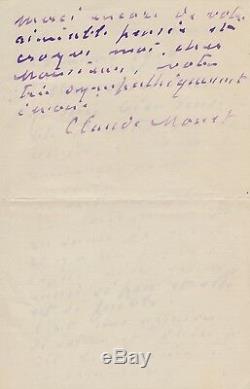 merci encore de votre
aimable pensée et
croyez moi, cher
Monsieur, votre
très sympathiquement
Claude Monet